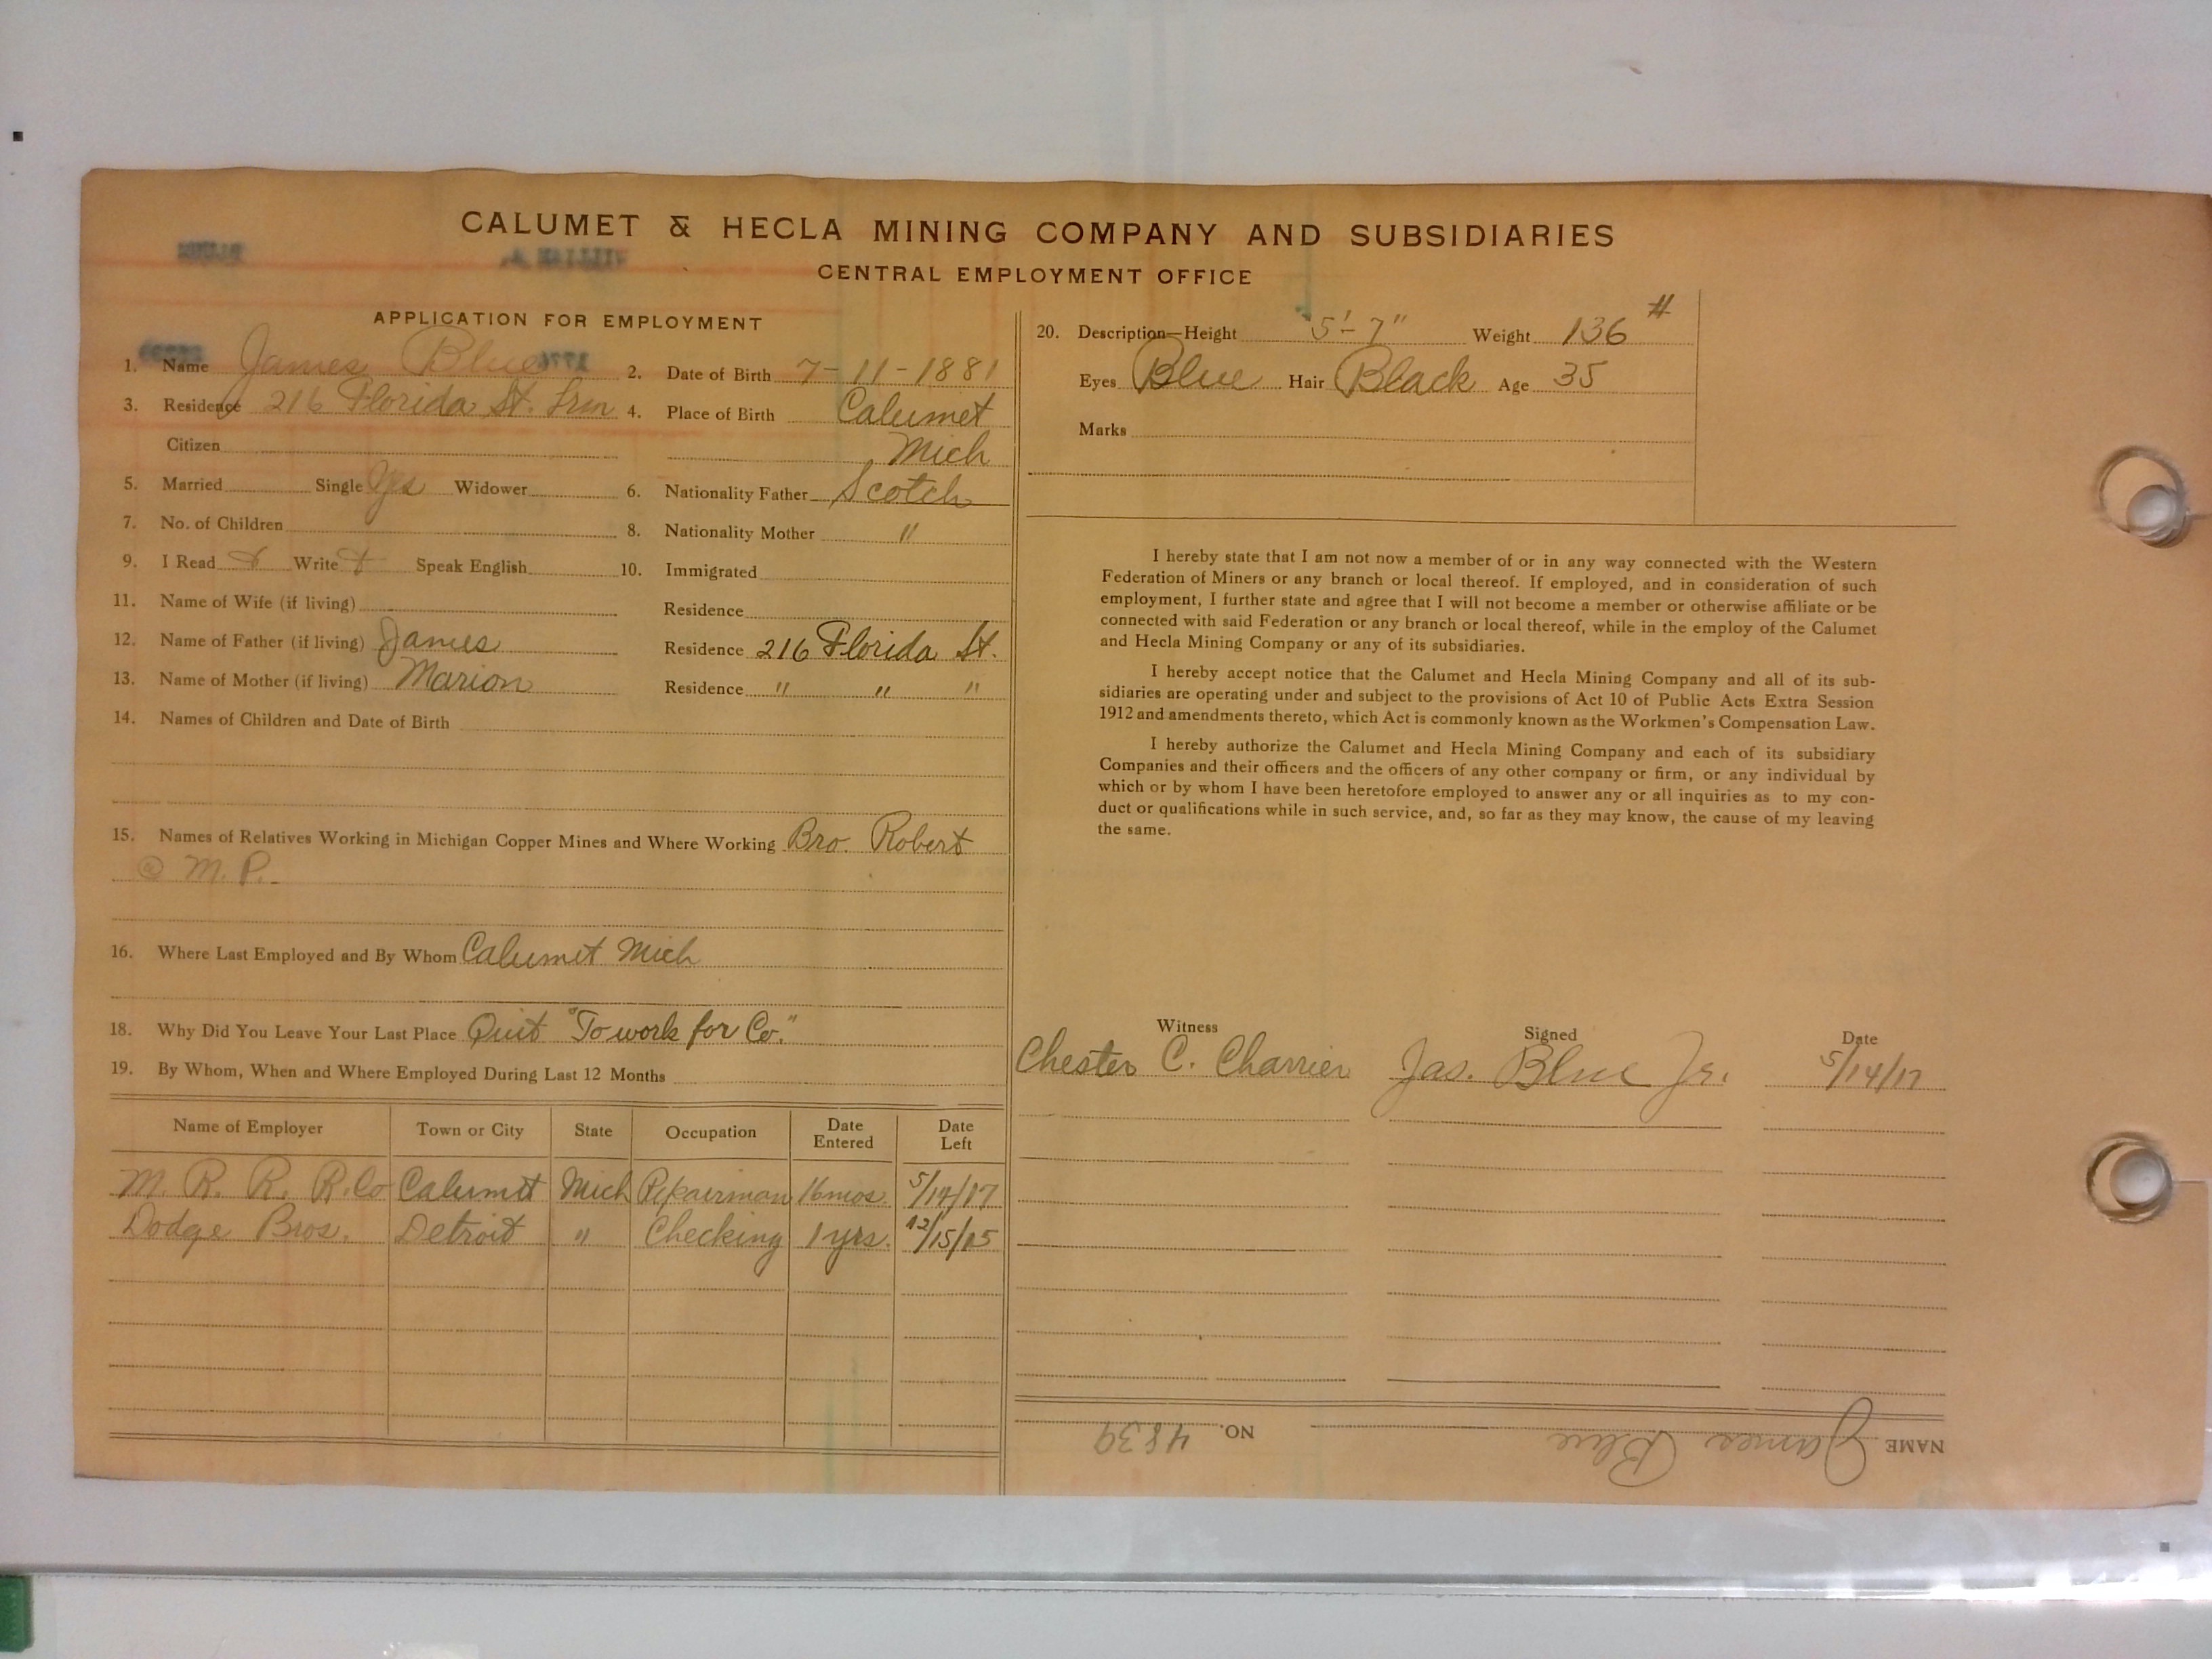 CALUMET & HECLA MINING COMPANY AND SUBSIDIARIES
CENTRAL EMPLOYMENT OFFICE
APPLICATION FOR EMPLOYMENT
1. Name James Blue 2. Date of Birth 7-11-1881
3. Residence 216 Florida St. Lrm 4. Place of Birth Calumet
Citizen Mich
5. Married Single Yes Widower 6. Nationality Father Scotch
7. No. of Children 8. Nationality Mother "
9. I Read Write Speak English 10. Immigrated
11. Name of Wife (if living) Residence
12. Name of Father (if living) James Residence 216 Florida St.
13. Name of Mother (if living) Marion Residence " " "
14. Names of Children and Date of Birth
15. Names of Relatives Working in Michigan Copper Mines and Where Working Bro. Robert
@ M. P.
16. Where Last Employed and By Whom Calumet Mich
18. Why Did You Leave Your Last Place Quit "To work for Co."
19. By Whom, When and Where Employed During Last 12 Months
Name of Employer Town or City State Occupation Date Entered Date Left
M. R. R. R. Co Calumet Mich Repairman 16 mos. 5/14/17
Dodge Bros. Detroit " Checking 1 yrs. 12/15/15
20. Description—Height 5'-7" Weight 136 #
Eyes Blue Hair Black Age 35
Marks
I hereby state that I am not now a member of or in any way connected with the Western
Federation of Miners or any branch or local thereof. If employed, and in consideration of such
employment, I further state and agree that I will not become a member or otherwise affiliate or be
connected with said Federation or any branch or local thereof, while in the employ of the Calumet
and Hecla Mining Company or any of its subsidiaries.
I hereby accept notice that the Calumet and Hecla Mining Company and all of its sub-
sidiaries are operating under and subject to the provisions of Act 10 of Public Acts Extra Session
1912 and amendments thereto, which Act is commonly known as the Workmen's Compensation Law.
I hereby authorize the Calumet and Hecla Mining Company and each of its subsidiary
Companies and their officers and the officers of any other company or firm, or any individual by
which or by whom I have been heretofore employed to answer any or all inquiries as to my con-
duct or qualifications while in such service, and, so far as they may know, the cause of my leaving
the same.
Witness Signed Date
Chester C. Charrier Jas. Blue Jr. 5/14/17
NAME James Blue NO. 4839